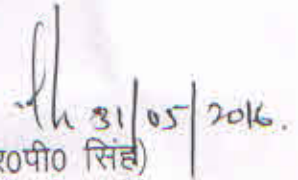 31/05/2016.
र०पी० सिंह)